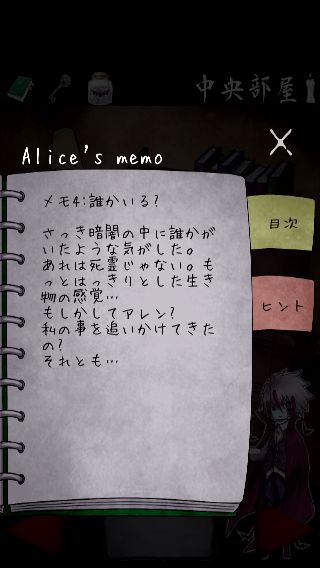 中央部屋
Alice's memo
メモ4:誰かいる?
さっき暗闇の中に誰かが
いたような気がした。
あれは死霊じゃない。も
っとはっきりとした生き
物の感覚…
もしかしてアレン?
私の事を追いかけてきた
の?
それとも…
目次
ヒント